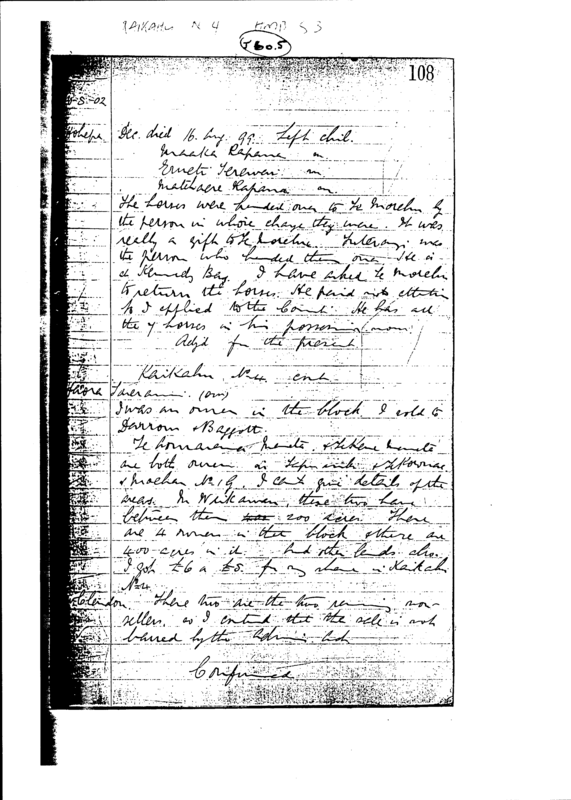 KAIKAHU N 4 HMB 53
J 60.5
108
-8-02
Dec. died 16 Aug 99. Left chil.
Maaka Rapana m
Erueti m
Rapana m
The horses were handed over to Te Morehu by
the person in whose charge they were. It was
really a gift to Te Morehu. was
the person who handed them over. He is
at Kennedy Bay. I have asked Te Morehu
to return the horses. He paid no attention
so I applied to the Court. He has all
the 7 horses in his possession now.
Adjd for the present
Kaikahu No 4 cont
(on)
I was an owner in the block I sold to
Darrow & Bagnall.
are both owners in
& Moehau No 1G. I can't give details of the
areas. In these two have
between them 200 acres. There
are 4 owners in the block & there are
400 acres in it. had other lands also.
I got £6 or £5 for my share in Kaikahu
No 4.
Clendon. These two are the two non-
sellers, so I contend that the sale is not
barred by the Admin Act
Confirmed